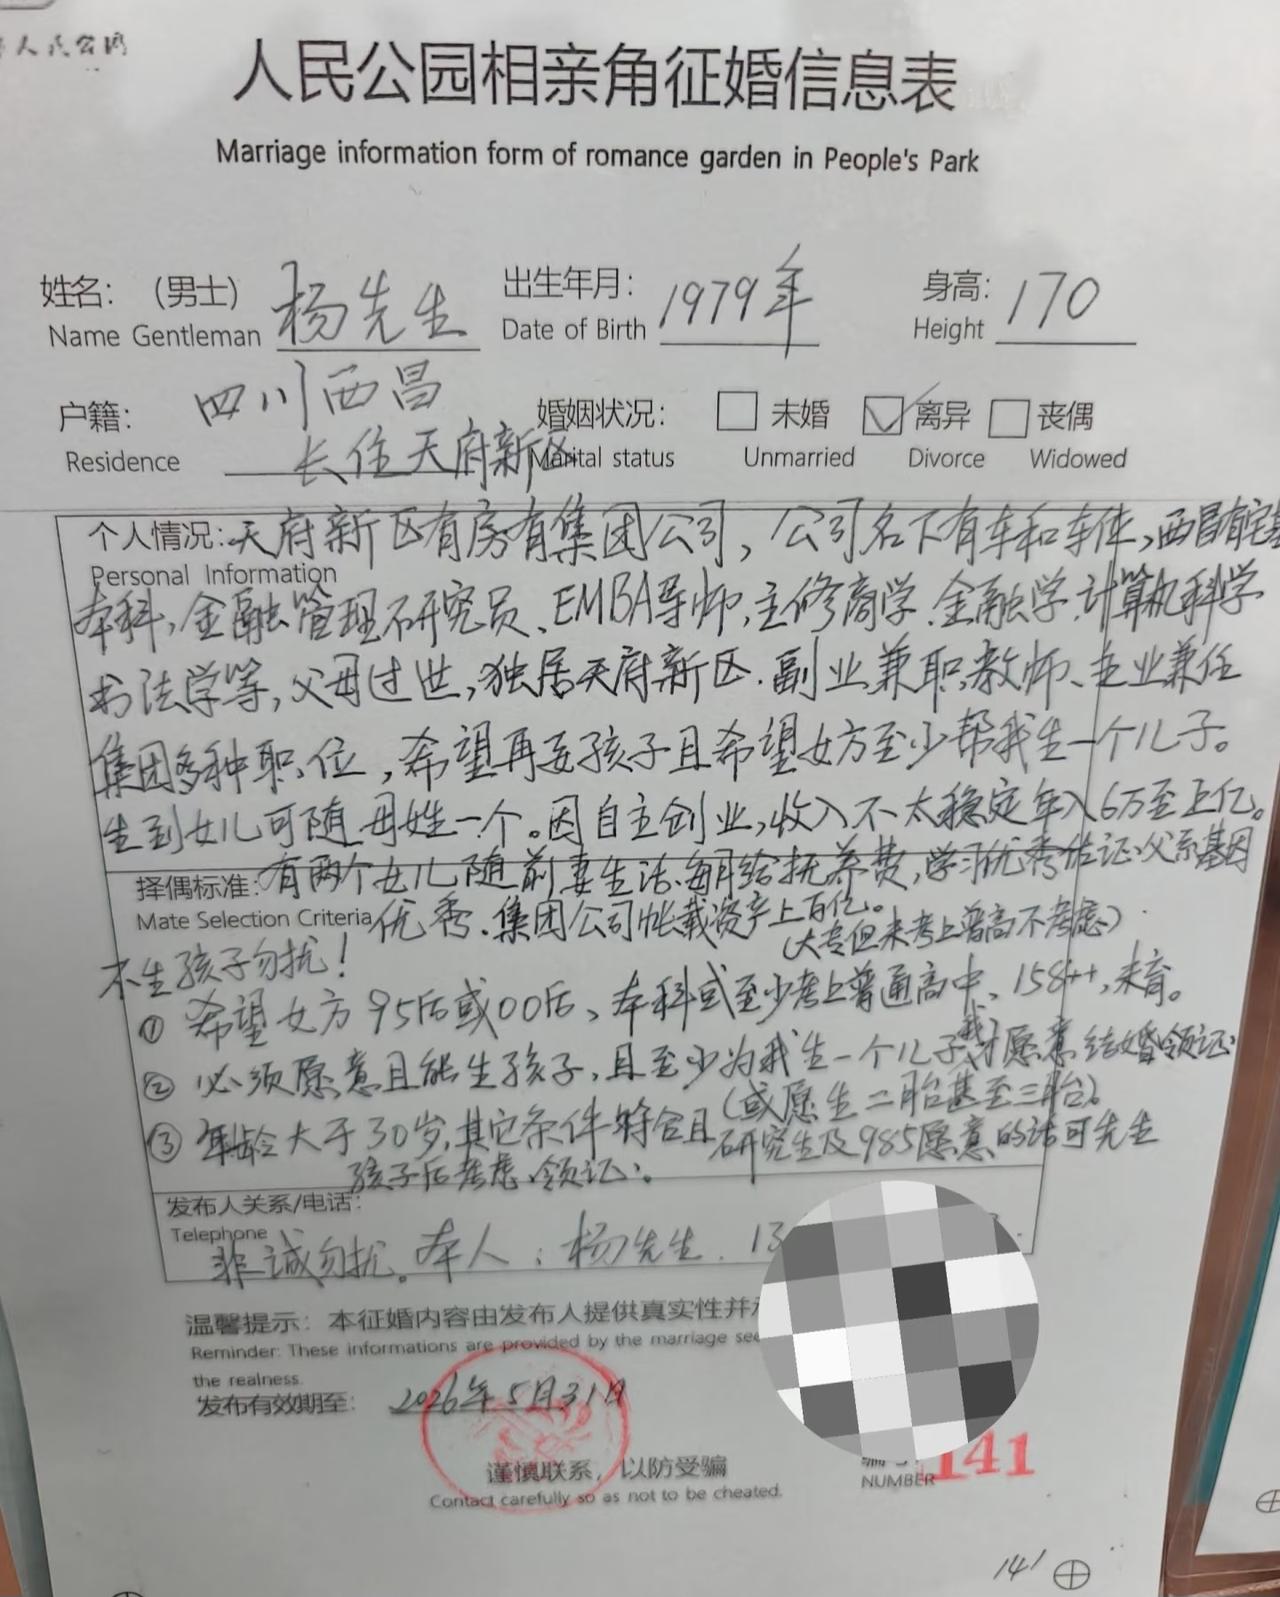 人民公园
人民公园相亲角征婚信息表
Marriage information form of romance garden in People's Park
姓名：（男士） 杨先生 出生年月：1979年 身高：170
Name Gentleman Date of Birth Height
户籍： 四川西昌 婚姻状况： 未婚 离异 丧偶
Residence 长住天府新区 Marital status Unmarried Divorce Widowed
个人情况：天府新区有房有集团公司，公司名下有车和车位，西昌有宅基
Personal Information
本科，金融管理研究员、EMBA导师，主修商学.金融学.计算机科学
书法学等，父母过世，独居天府新区.副业兼职教师、主业兼任
集团多种职位，希望再要孩子且希望女方至少帮我生一个儿子。
生到女儿可随母姓一个。因自主创业，收入不太稳定年入6万至上亿。
择偶标准：有两个女儿随前妻生活、每月给抚养费，学习优秀佐证父系基因
Mate Selection Criteria 优秀.集团公司帐载资产上百亿。
不生孩子勿扰！ （大专但未考上普高不考虑）
① 希望女方95后或00后、本科或至少考上普通高中、158++，未育。
② 必须愿意且能生孩子，且至少为我生一个儿子我才愿意结婚领证
（或愿生二胎甚至三胎）
③ 年龄大于30岁，其它条件符合且研究生及985愿意的话可先生
孩子后考虑领证。
发布人关系/电话：
Telephone
非诚勿扰。本人：杨先生. 13
温馨提示：本征婚内容由发布人提供真实性并
Reminder: These informations are provided by the marriage
the realness.
发布有效期至： 2026年5月31日
谨慎联系，以防受骗
Contact carefully so as not to be cheated.
NUMBER 141
141